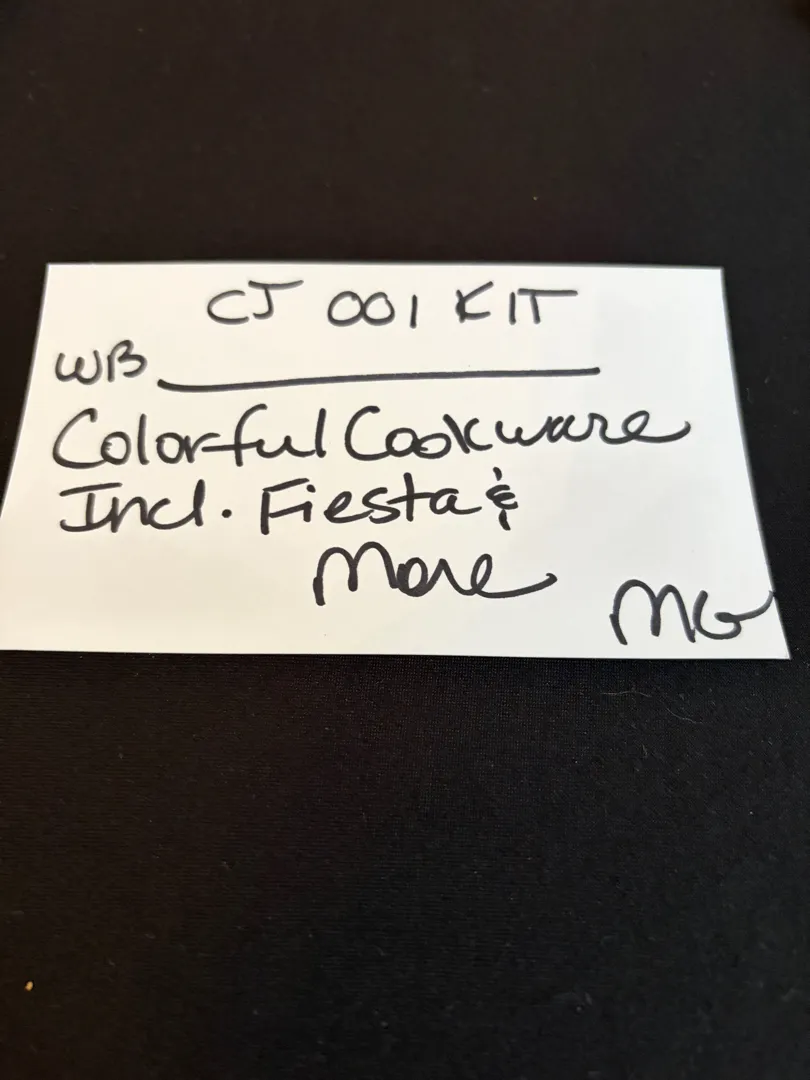 CJ 001 KIT
WB ________________
Colorful Cookware
Incl. Fiesta &
More
MG